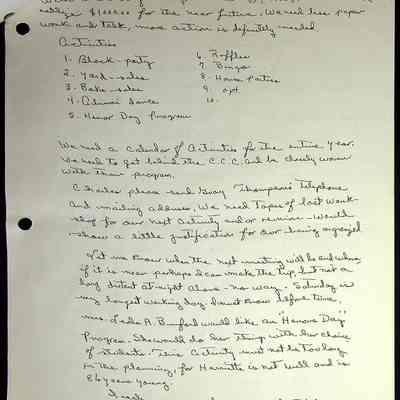 realize $1000.00 for the near future. We need less paper
work and talk, more action is definitely needed
Activities
1. Block-party
2. Yard-sales
3. Bake-sales
4. Alumni dance
5. Honor Day Program
6. Raffles
7. Bingo
8. House Parties
9. opt.
10.
We need a Calendar of Activities for the entire year.
We need to get behind the C.C.C. and be closely woven
with their program.
Charles please send Gray Thompson's Telephone
and mailing address. We need Tapes of last week-
for our next Activity and or reunion - Would
show a little justification for our being organized
Let me know when the next meeting will be and where
if it is near perhaps I can make the trip, but not a
long distant at night alone - no way. Saturday is
my longest working day. I must know before time.
Mrs. Leila A. would like an "Honors Day"
Program. She would do her thing with her choice
of students. This Activity must not be too long
in the planning, for Harriette is not well and is
86 years young.